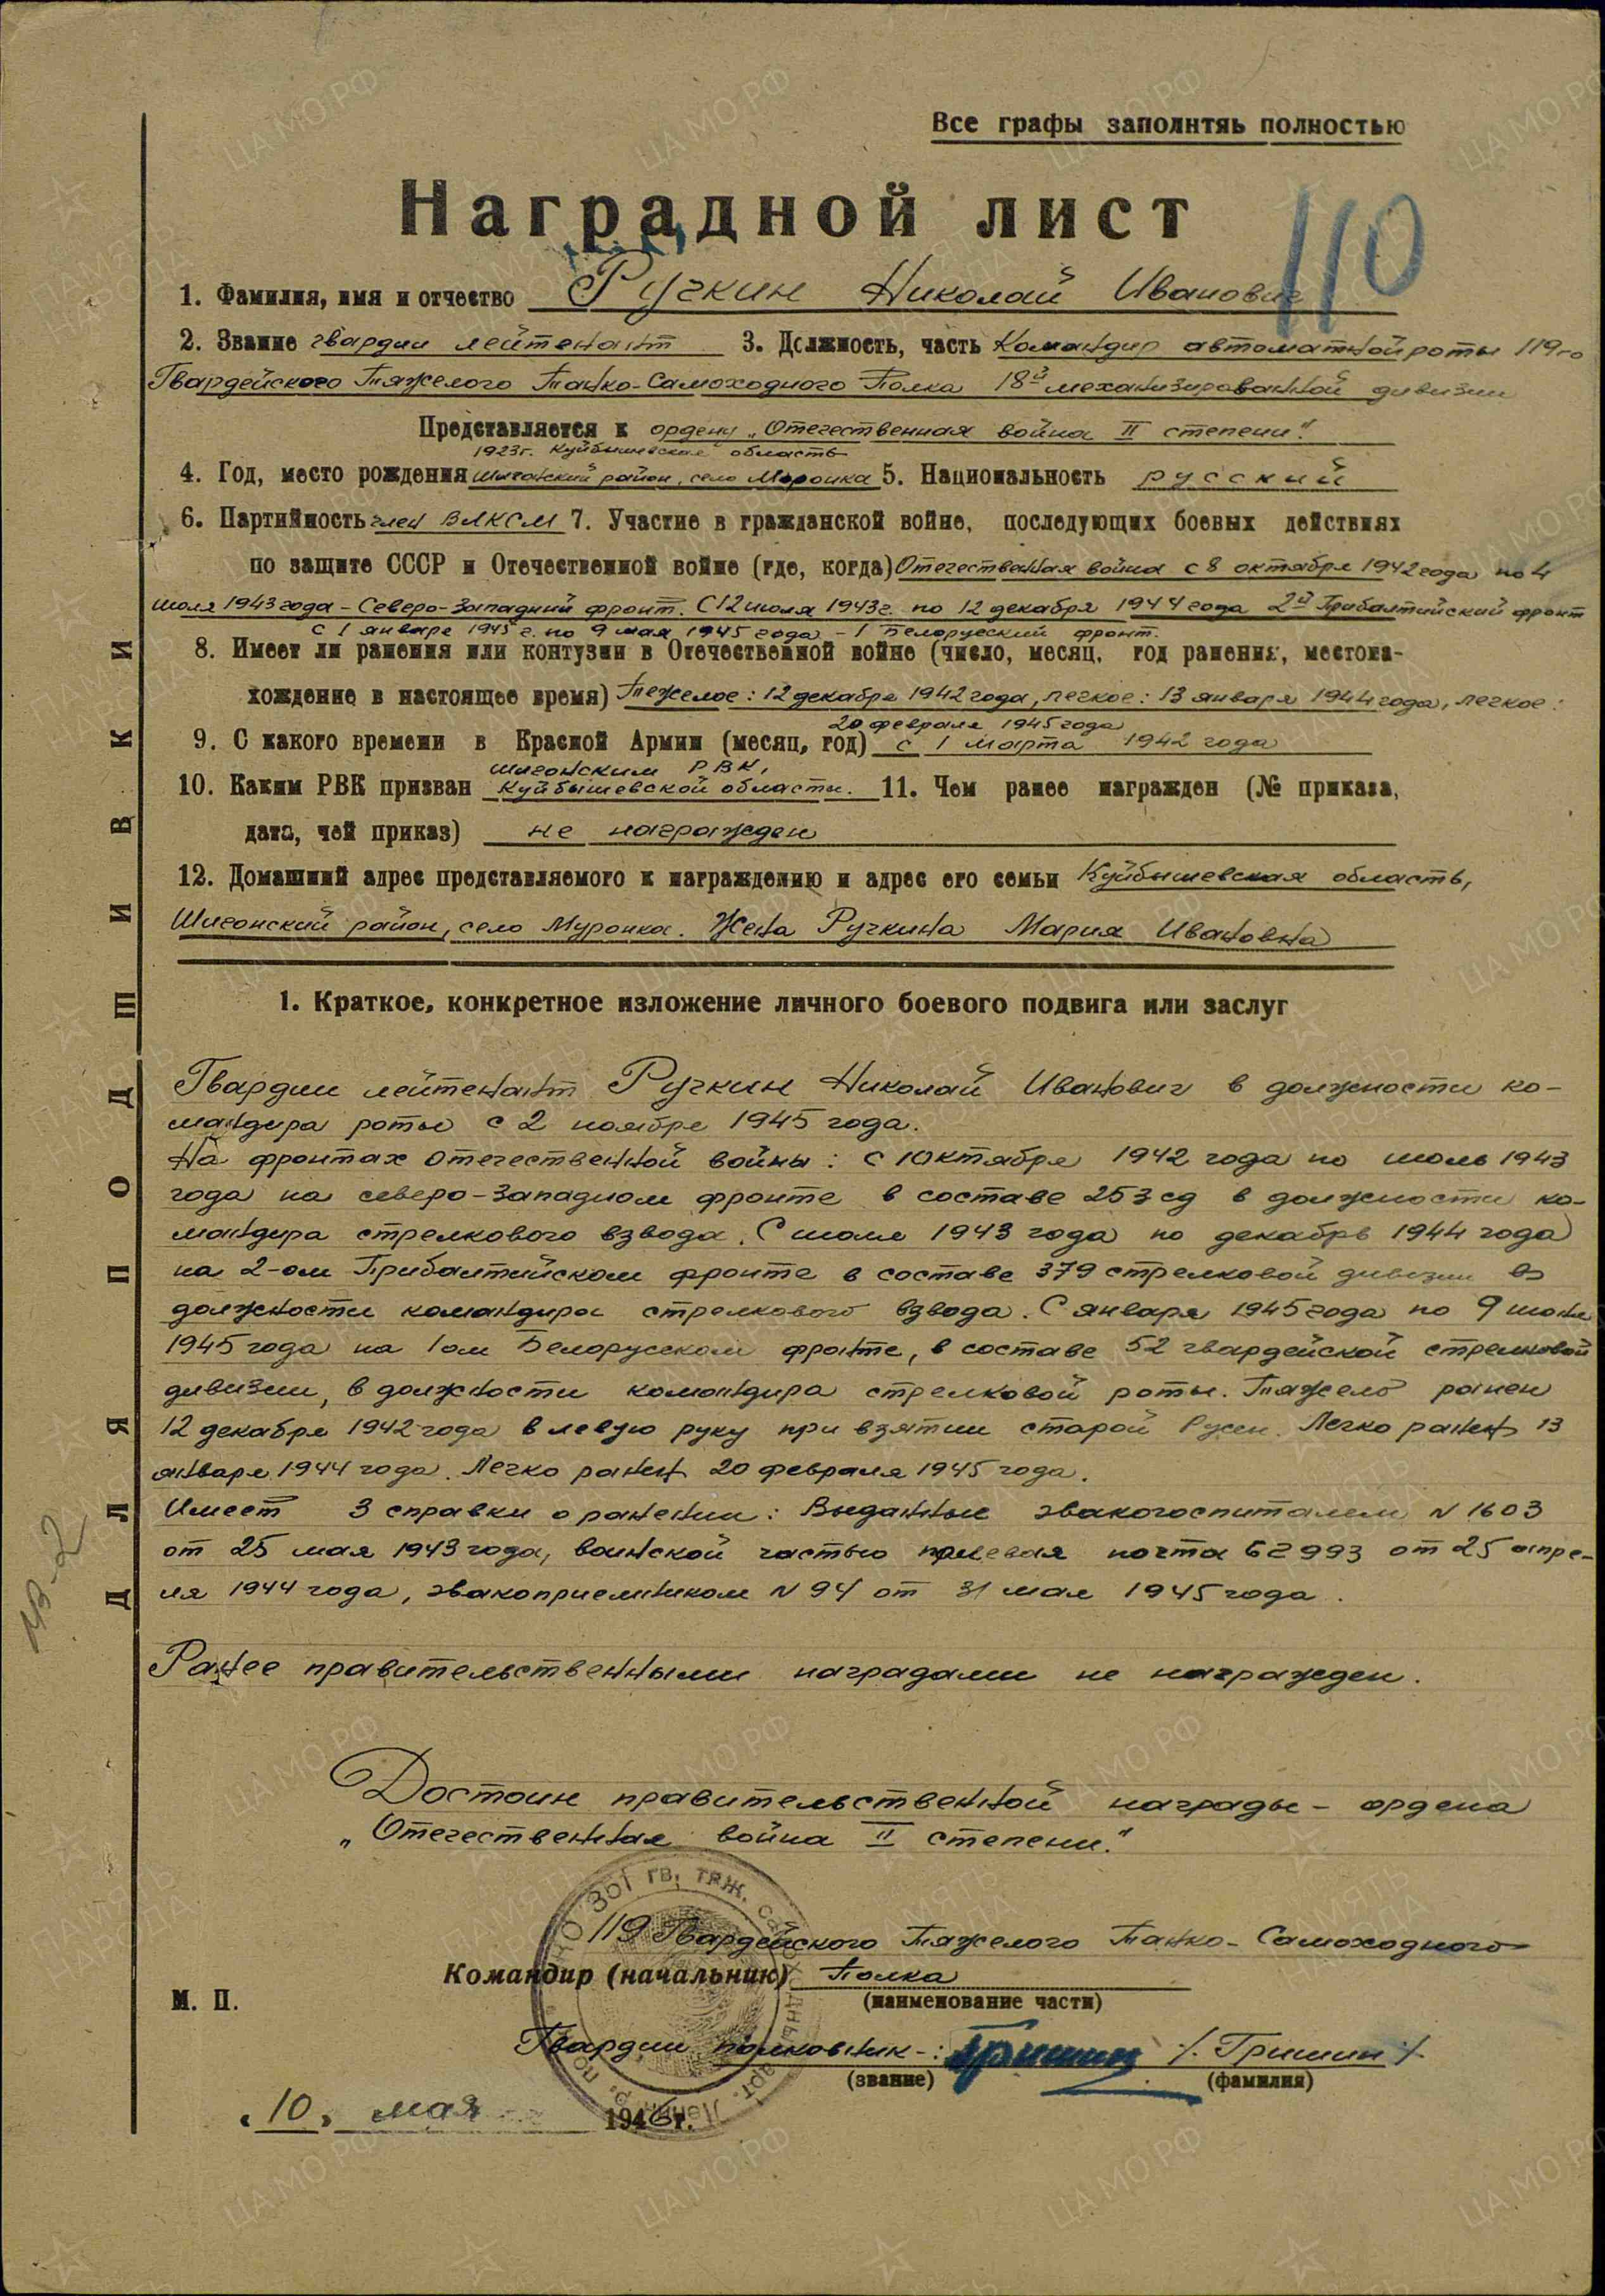 Все графы заполнтяь полностью
110
Наградной лист
1. Фамилия, имя и отчество Ручкин Николай Иванович
2. Звание гвардии лейтенант 3. Должность, часть Командир автоматной роты 119го
Гвардейского Тяжелого Танко-Самоходного Полка 18й механизированной дивизии
Представляется к ордену „Отечественная война II степени".
1923г. Куйбышевская область
4. Год, место рождения Шигонский район, село Муронка 5. Национальность русский
6. Партийность член ВЛКСМ 7. Участие в гражданской войне, последующих боевых действиях
по защите СССР и Отечественной войне (где, когда) Отечественная война с 8 октября 1942 года по 4
июля 1943 года - Северо-Западный фронт. С 12 июля 1943г. по 12 декабря 1944 года 2й Прибалтийский фронт
с 1 январе 1945 г. по 9 мая 1945 года - 1 Белорусский фронт.
8. Имеет ли ранения или контузии в Отечественной войне (число, месяц, год ранения, местона-
хождение в настоящее время) Тежелое: 12 декабря 1942 года, легкое: 13 января 1944 года, легкое:
20 февраля 1945 года
9. С какого времени в Красной Армии (месяц, год) с 1 марта 1942 года
Шигонским РВК,
10. Каким РВК призван Куйбышевской области. 11. Чем ранее награжден (№ приказа,
дата, чей приказ) не награжден
12. Домашний адрес представляемого к награждению и адрес его семьи Куйбышевская область,
Шигонский район, село Муронка. Жена Ручкина Мария Ивановна
1. Краткое, конкретное изложение личного боевого подвига или заслуг
Гвардии лейтенант Ручкин Николай Иванович в должности ко-
мандира роты с 2 ноября 1945 года.
На фронтах отечественной войны: с октября 1942 года по июль 1943
года на северо-западном фронте в составе 253 сд в должности ко-
мандира стрелкового взвода. С июля 1943 года по декабрь 1944 года
на 2-ом Прибалтийском фронте в составе 379 стрелковой дивизии в
должности командира стрелкового взвода. С января 1945 года по 9 июня
1945 года на 1ом Белорусском фронте, в составе 52 гвардейской стрелковой
дивизии, в должности командира стрелковой роты. Тяжело ранен
12 декабря 1942 года в левую руку при взятии старой Русси. Легко ранен 13
января 1944 года. Легко ранен 20 февраля 1945 года.
Имеет 3 справки о ранении: Выданные эвакогоспиталем N 1603
от 25 мая 1943 года, воинской частью полевая почта 62993 от 25 апре-
ля 1944 года, эвакоприемником N 94 от 31 мая 1945 года.
Ранее правительственными наградами не награжден.
Достоин правительственной награды - ордена
„Отечественная война II степени".
119 Гвардейского Тяжелого Танко-Самоходного
Командир (начальник) Полка
(наименование части)
М. П.
Гвардии полковник -: Гришин /. Гришин /.
(звание) (фамилия)
„10" мая 1946 г.
ДЛЯ ПОДШИВКИ
361 гв. тяж.
ЦА МО РФ
ПАМЯТЬ НАРОДА